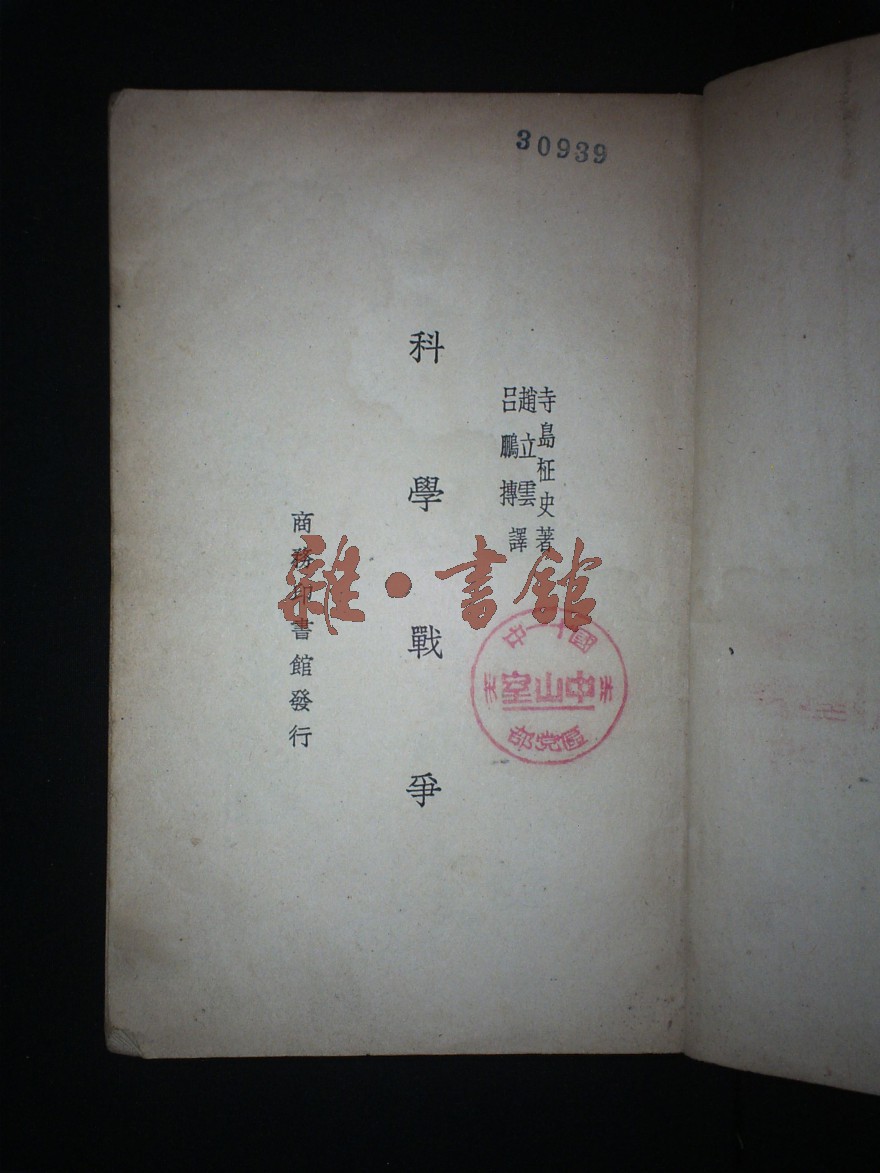 30939
寺島柾史著
趙立雲
呂鵬摶
譯
科學戰爭
商務印書館發行
雜·書館
中山室
區党部